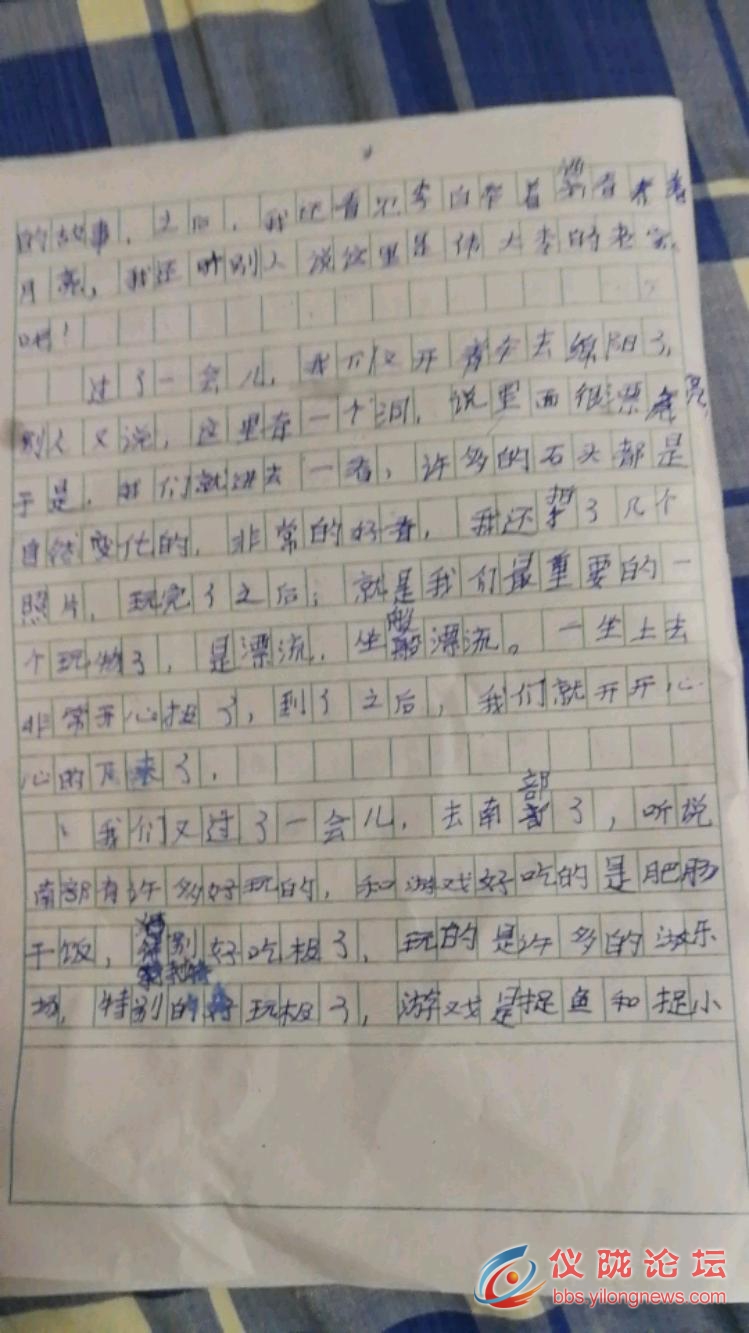 的故事，之后，我还看见李白牵着 着
月亮，我还听别人说这里是伟大李的老家
啊！
过了一会儿，我们又开着车去绵阳了，
别人又说，这里有一个洞，说里面很漂亮，
于是，我们就进去一看，许多的石头都是
自然变化的，非常的好看，我还 了几个
照片，玩完了之后；就是我们最重要的一
个玩物了，是漂流，坐船漂流。一坐上去
非常开心极了，到了之后，我们就开开心
心的下来了，
我们又过了一会儿，去南部了，听说
南部有许多好玩的，和游戏好吃的是肥肠
干饭，特别好吃极了，玩的是许多的游乐
场，特别的好玩极了，游戏是捉鱼和捉小
仪陇论坛
bbs.yilongnews.com